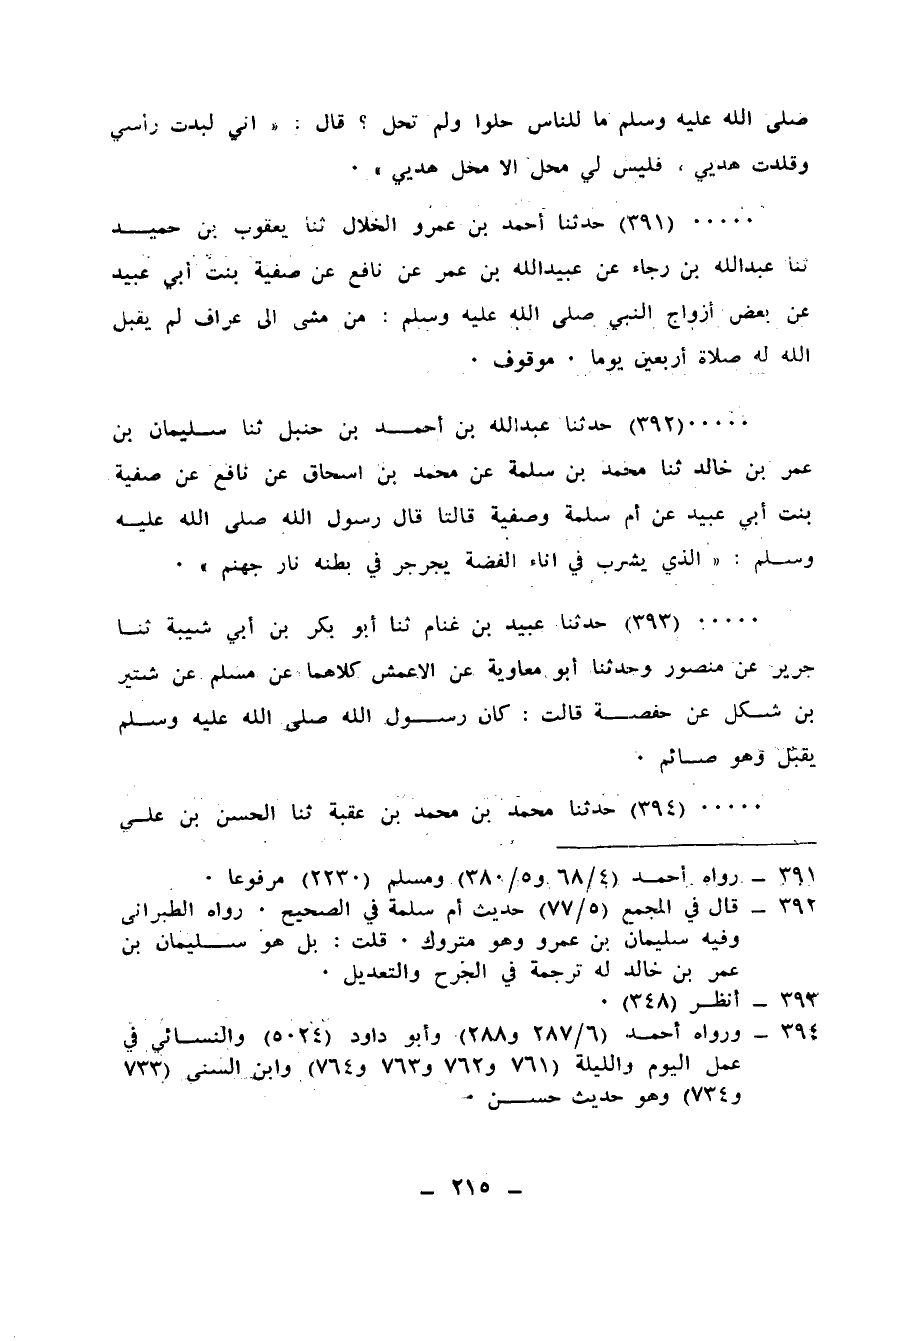 صلى الله عليه وسلم ما للناس حلوا ولم تحل ؟ قال : « اني لبدت رأسي
وقلدت هديي ، فليس لي محل الا محل هديي » ٠
٠٠٠٠٠ (٣٩١) حدثنا أحمد بن عمرو الخلال ثنا يعقوب بن حميد
ثنا عبدالله بن رجاء عن عبيدالله بن عمر عن نافع عن صفية بنت أبي عبيد
عن بعض أزواج النبي صلى الله عليه وسلم : من مشى الى عراف لم يقبل
الله له صلاة أربعين يوما ٠ موقوف ٠
٠٠٠٠٠(٣٩٢) حدثنا عبدالله بن أحمد بن حنبل ثنا سليمان بن
عمر بن خالد ثنا محمد بن سلمة عن محمد بن اسحاق عن نافع عن صفية
بنت أبي عبيد عن أم سلمة وصفية قالتا قال رسول الله صلى الله عليه
وسلم : « الذي يشرب في اناء الفضة يجرجر في بطنه نار جهنم » ٠
٠٠٠٠٠ (٣٩٣) حدثنا عبيد بن غنام ثنا أبو بكر بن أبي شيبة ثنا
جرير عن منصور وحدثنا أبو معاوية عن الاعمش كلاهما عن مسلم عن شتير
بن شكل عن حفصة قالت : كان رسول الله صلى الله عليه وسلم
يقبّل وهو صائم ٠
٠٠٠٠٠ (٣٩٤) حدثنا محمد بن محمد بن عقبة ثنا الحسن بن علي
٣٩١ ـ رواه أحمد (٦٨/٤ و٣٨٠/٥) ومسلم (٢٢٣٠) مرفوعا ٠
٣٩٢ ـ قال في المجمع (٧٧/٥) حديث أم سلمة في الصحيح ٠ رواه الطبراني
وفيه سليمان بن عمرو وهو متروك ٠ قلت : بل هو سليمان بن
عمر بن خالد له ترجمة في الجرح والتعديل ٠
٣٩٣ ـ أنظر (٣٤٨) ٠
٣٩٤ ـ ورواه أحمد (٢٨٧/٦ و٢٨٨) وأبو داود (٥٠٢٤) والنسائي في
عمل اليوم والليلة (٧٦١ و٧٦٢ و٧٦٣ و٧٦٤) وابن السنى (٧٣٣
و٧٣٤) وهو حديث حسن ٠
ـ ٢١٥ ـ